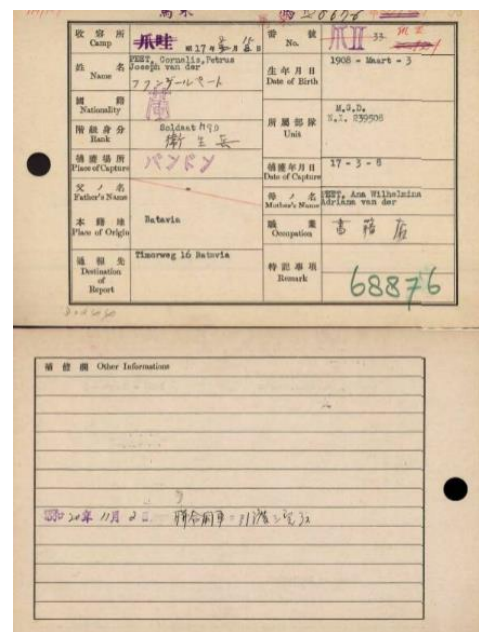 28676
收容所 Camp 爪哇 昭17年 月 日
番號 No. 爪II 33
姓名 Name PEET, Cornelis, Petrus
Joseph van der
ファンデールペート
生年月日 Date of Birth 1908 - Maart - 3
國籍 Nationality 蘭
階級身分 Rank Soldaat
衛生兵
所屬部隊 Unit M.G.D.
N.I. 239508
捕獲場所 Place of Capture バンドン
捕獲年月日 Date of Capture 17 - 3 - 8
父ノ名 Father's Name -
母ノ名 Mother's Name PEET, Ana Wilhelmina
Adriana van der
本籍地 Place of Origin Batavia
職業 Occupation
通報先 Destination of Report Timorweg 16 Batavia
特記事項 Remark 68876
補修欄 Other Informations
昭和20年11月2日 聯合国軍ニ引渡シ完了